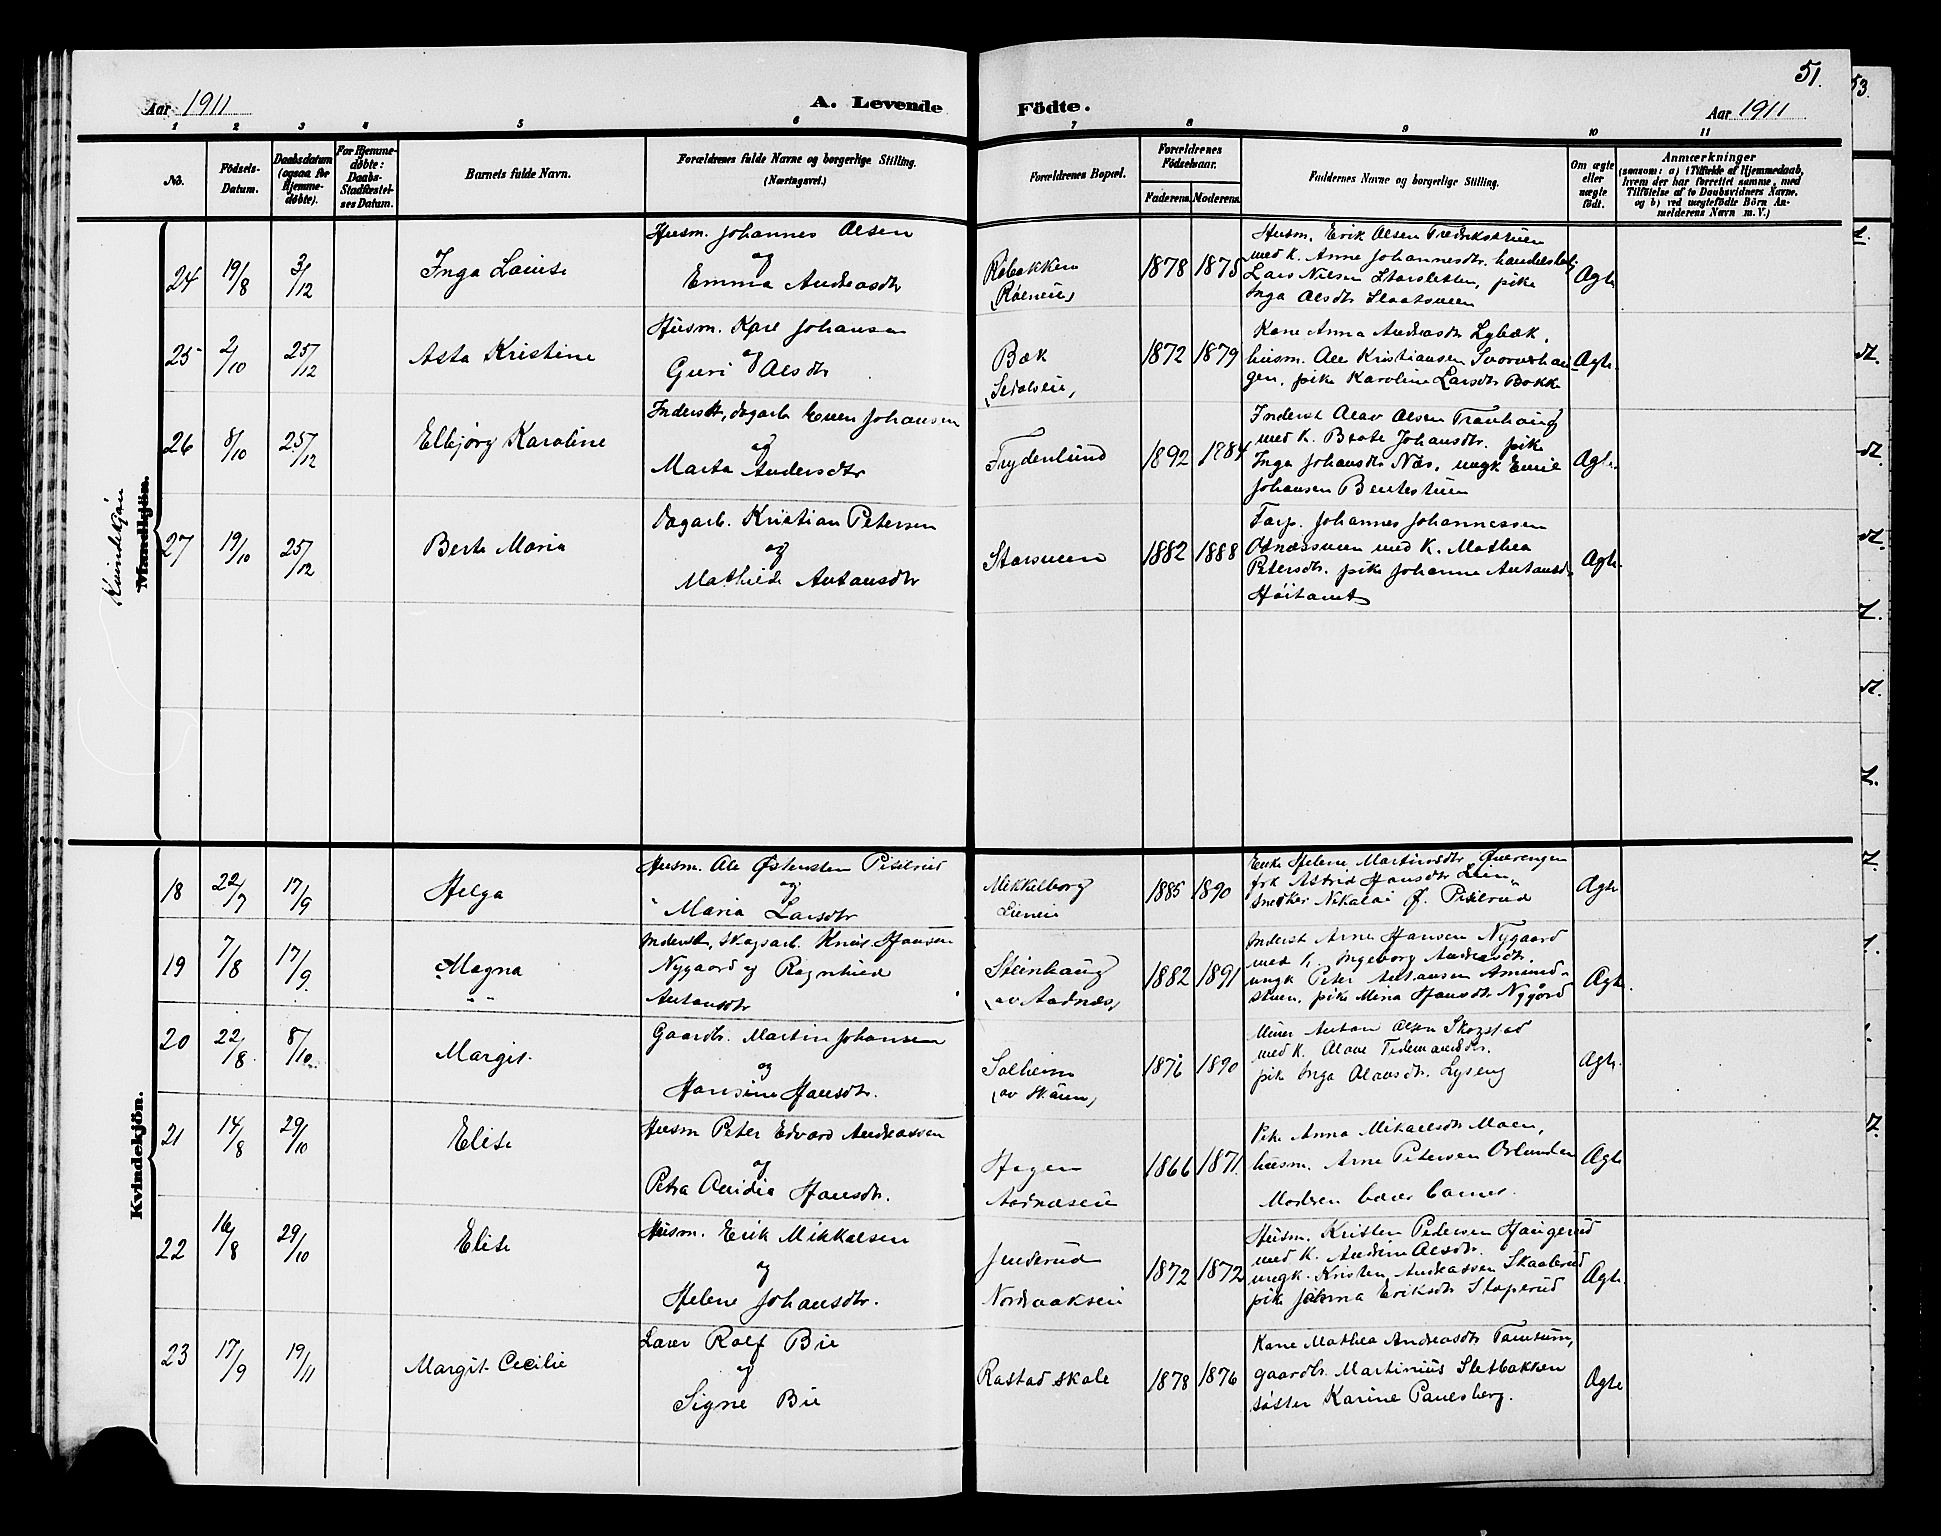 51.
53.
Aar 1911
A. Levende
Födte.
Aar 1911
1 2 3 4 5 6 7 8 9 10 11
No.
Födsels-
Datum.
Daabsdatum
(ogsaa for
Hjemme-
døbte).
For Hjemme-
døbte:
Daabs-
Stadfæstel-
ses Datum.
Barnets fulde Navn.
Forældrenes fulde Navne og borgerlige Stilling.
(Næringsvei.)
Forældrenes Bopæl.
Forældrenes
Födselsaar.
Faderens
Moderens
Faddernes Navne og borgerlige Stilling.
Om ægte
eller
uægte
födt.
Anmærkninger
(saasom: a) i Tilfælde af Hjemmedaab,
hvem der har forrettet samme, med
Tilföielse af to Daabsvidners Navne.
og b) ved uægtefödte Börn An-
melderens Navn m. V.)
Kvindekjön
Mandkjön.
24
19/8
3/12
Inga Louise
Husm. Johannes Olsen
og
Emma Andreasdtr
1878
1875
Husm. Erik Olsen
med k. Anne Johannesdtr.
Lars Nilsen pike
Inga Olsdtr
Ægte
25
2/10
25/12
Asta Kristine
Husm. Karl Johansen
og
Guri Olsdtr
Bæk
1872
1879
Kone Anna Andreasdtr Lybæk,
husm. Ole Kristiansen
gen, pike Karoline Larsdtr Bakke
Ægte.
26
8/10
25/12
Elbjörg Karoline
Inderst, dagarb. Even Johansen
og
Marta Andersdtr
Frydenlund
1892
1884
Inderst Olav Olsen Tranhaug
med k. Beate Johansdtr. pike
Inga Johansdtr Næs, ungk Emil
Johansen Bentestuen
Ægte.
27
19/10
25/12
Berte Marie
Dagarb. Kristian Petersen
og
Mathilde Antonsdtr
Storstuen
1882
1888
Forp. Johannes Johannessen
med k. Mathea
Petersdtr. pike Johanne Antonsdtr
Ægte.
Kvindekjön.
18
22/7
17/9
Helga
Husm. Ole Østensten Piselrud
og
Maria Larsdtr
Mikkelborg
Lieneie
1885
1890
Enke Helene Martinsdtr
frk Astrid Hansdtr Lien,
snedker Nikolai Ø. Piselrud
Ægte
19
7/8
17/9
Magna
Inderst, skogsarb. Knut Hansen
Nygaard og Ragnhild
Antonsdtr
Steinhaug
(av Aadnæs)
1882
1891
Inderst Arne Hansen Nygaard
med k. Ingeborg Andreasdtr.
ungk Peter Antonsen Amund-
stuen, pike Mina Hansdtr Nygård
Ægte.
20
22/8
8/10
Margit.
Gaardbr. Martin Johansen
og
Hansine Hansdtr.
Solheim
1876
1890
Anton Olsen Skogstad
med k. Olave
pike Inga Olavsdtr. Lyseng
Ægte.
21
14/8
29/10
Elise
Husm Peter Edvard Andreassen
og
Petra Hansdtr.
Hagen
Aadnæseie
1866
1871.
Pike Anna Mikaelsdtr Moen,
husm. Arne Petersen Orlunden
Modren barer barnet.
Ægte
22
16/8
29/10
Elise
Husm. Erik Mikkelsen
og
Helene Johansdtr.
1872
1872
Husm. Kristen Pedersen Haugerud
med k. Andrine Olsdtr.
ungk. Kristen Andreassen Skaalerud
pike Eriksdtr
Ægte.
23
17/9
19/11
Margit Cecilie
Lærer Rolf Bie
og
Signe Bie
Rostad skole
1878
1876
Kone Mathea Andreasdtr Tomtum,
gaardbr. Martinius Sletbakken
søster Karine Paulsberg.
Ægte